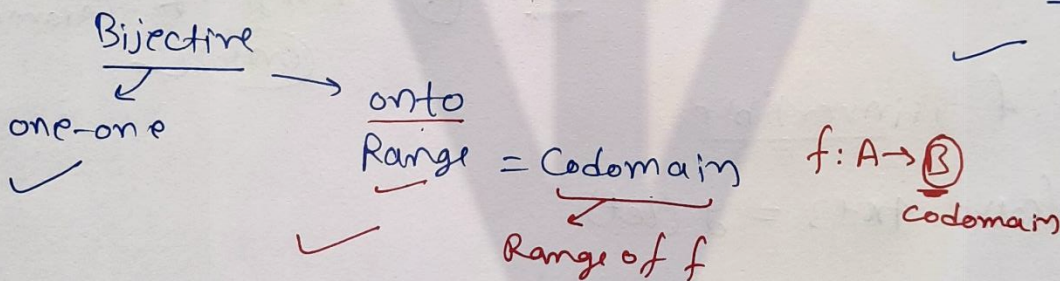 Bijective
one-one
onto
Range = Codomain
f: A → B
codomain
Range of f